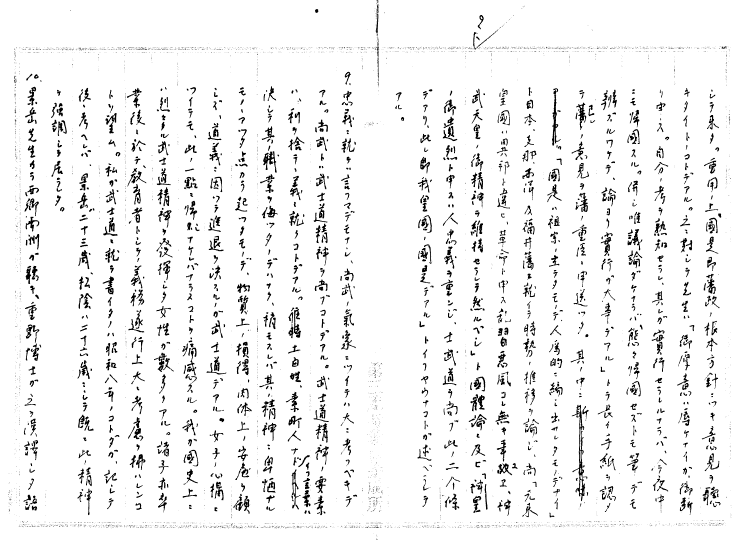 シテ来タ。「重用ノ上ハ國是即藩政ノ根本方針ニツキ意見ヲ聽
キタイトノコトデアル。之ニ對シテ先生ハ「御厚意ハ辱ケナイガ御斷
リ申ス。自分ノ考ヲ熟知セラレ、其レガ實行セラレルナラバ、今夜中
ニモ歸國スル。併シ唯議論ダケナラバ態々歸國セズトモ筆デモ
辨ズルワケデ、論ヨリ實行ガ大事デアル」ト長イ手紙ヲ認メ
テ藩ノ意見ヲ藩ノ重臣ニ申送ッタ。其ノ中ニ
「國是ハ祖宗ノ立テタモノデ人為的ニ編ミ出シタモノデナイ」
ト日本、支那西洋及福井藩ニ就イテ時勢ノ推移ヲ論ジ、尚「元來
皇國ハ異邦ト違ヒ、革命ト申ス乱習惡風コレ無キ事故ヱ、神
武天皇ノ御精神ヲ維持セラレテ然ルベシ」ト國體論ニ及ビ「神皇
ノ御遺烈ト申スハ人忠義ヲ重ンジ、士武道ヲ尚ブ此ノ二個條
デアリ、此レ即我皇國ノ國是デアル」トイフヤウナコトガ述ベラレテ
アル。
9. 忠義ニ就テハ言フマデモナシ、尚武ノ氣象ニツイテハ大ニ考フベキデ
アル。尚武トハ武士道精神ヲ尚ブコトデアル。武士道精神ノ要素
ハ、利ヲ捨テ義ニ就クコトデアル。唯時ニ土百姓、素町人ナドイフ言葉ハ
決シテ其ノ職業ヲ侮ッタノデハナク、精モスレバ其ノ精神ニ卑怯ナル
モノノアッタ点カラ起ッタモノデ、物質上ノ損得、肉体上ノ安危ヲ顧
ミズ、道義ニ因ッテ進退ヲ決スルガ武士道デアル。女子ノ心構ニ
ツイテモ、此ノ一點ニ歸ルナケレバナラヌコトヲ痛感スル。我ガ國史上ニ
ハ烈々タル武士道精神ヲ發揮シタ女性ガ數多クアル。諸子ガ卒
業後ニ於テ、敎育者トシテ義務遂行上大ニ考慮ヲ拂ハレンコ
トヲ望ム。私ガ武士道ニ就テ書イタノハ昭和八年ノコトダガ、記シテ
後ニ考ヘレバ、景岳ハ二十三歳、松陰ハ二十六歳ニシテ既ニ此ノ精神
ヲ強調シテ居ラレタ。
10. 景岳先生カラ西郷南洲ガ聽キ、重野博士ガ之ヲ漢譯シタ語